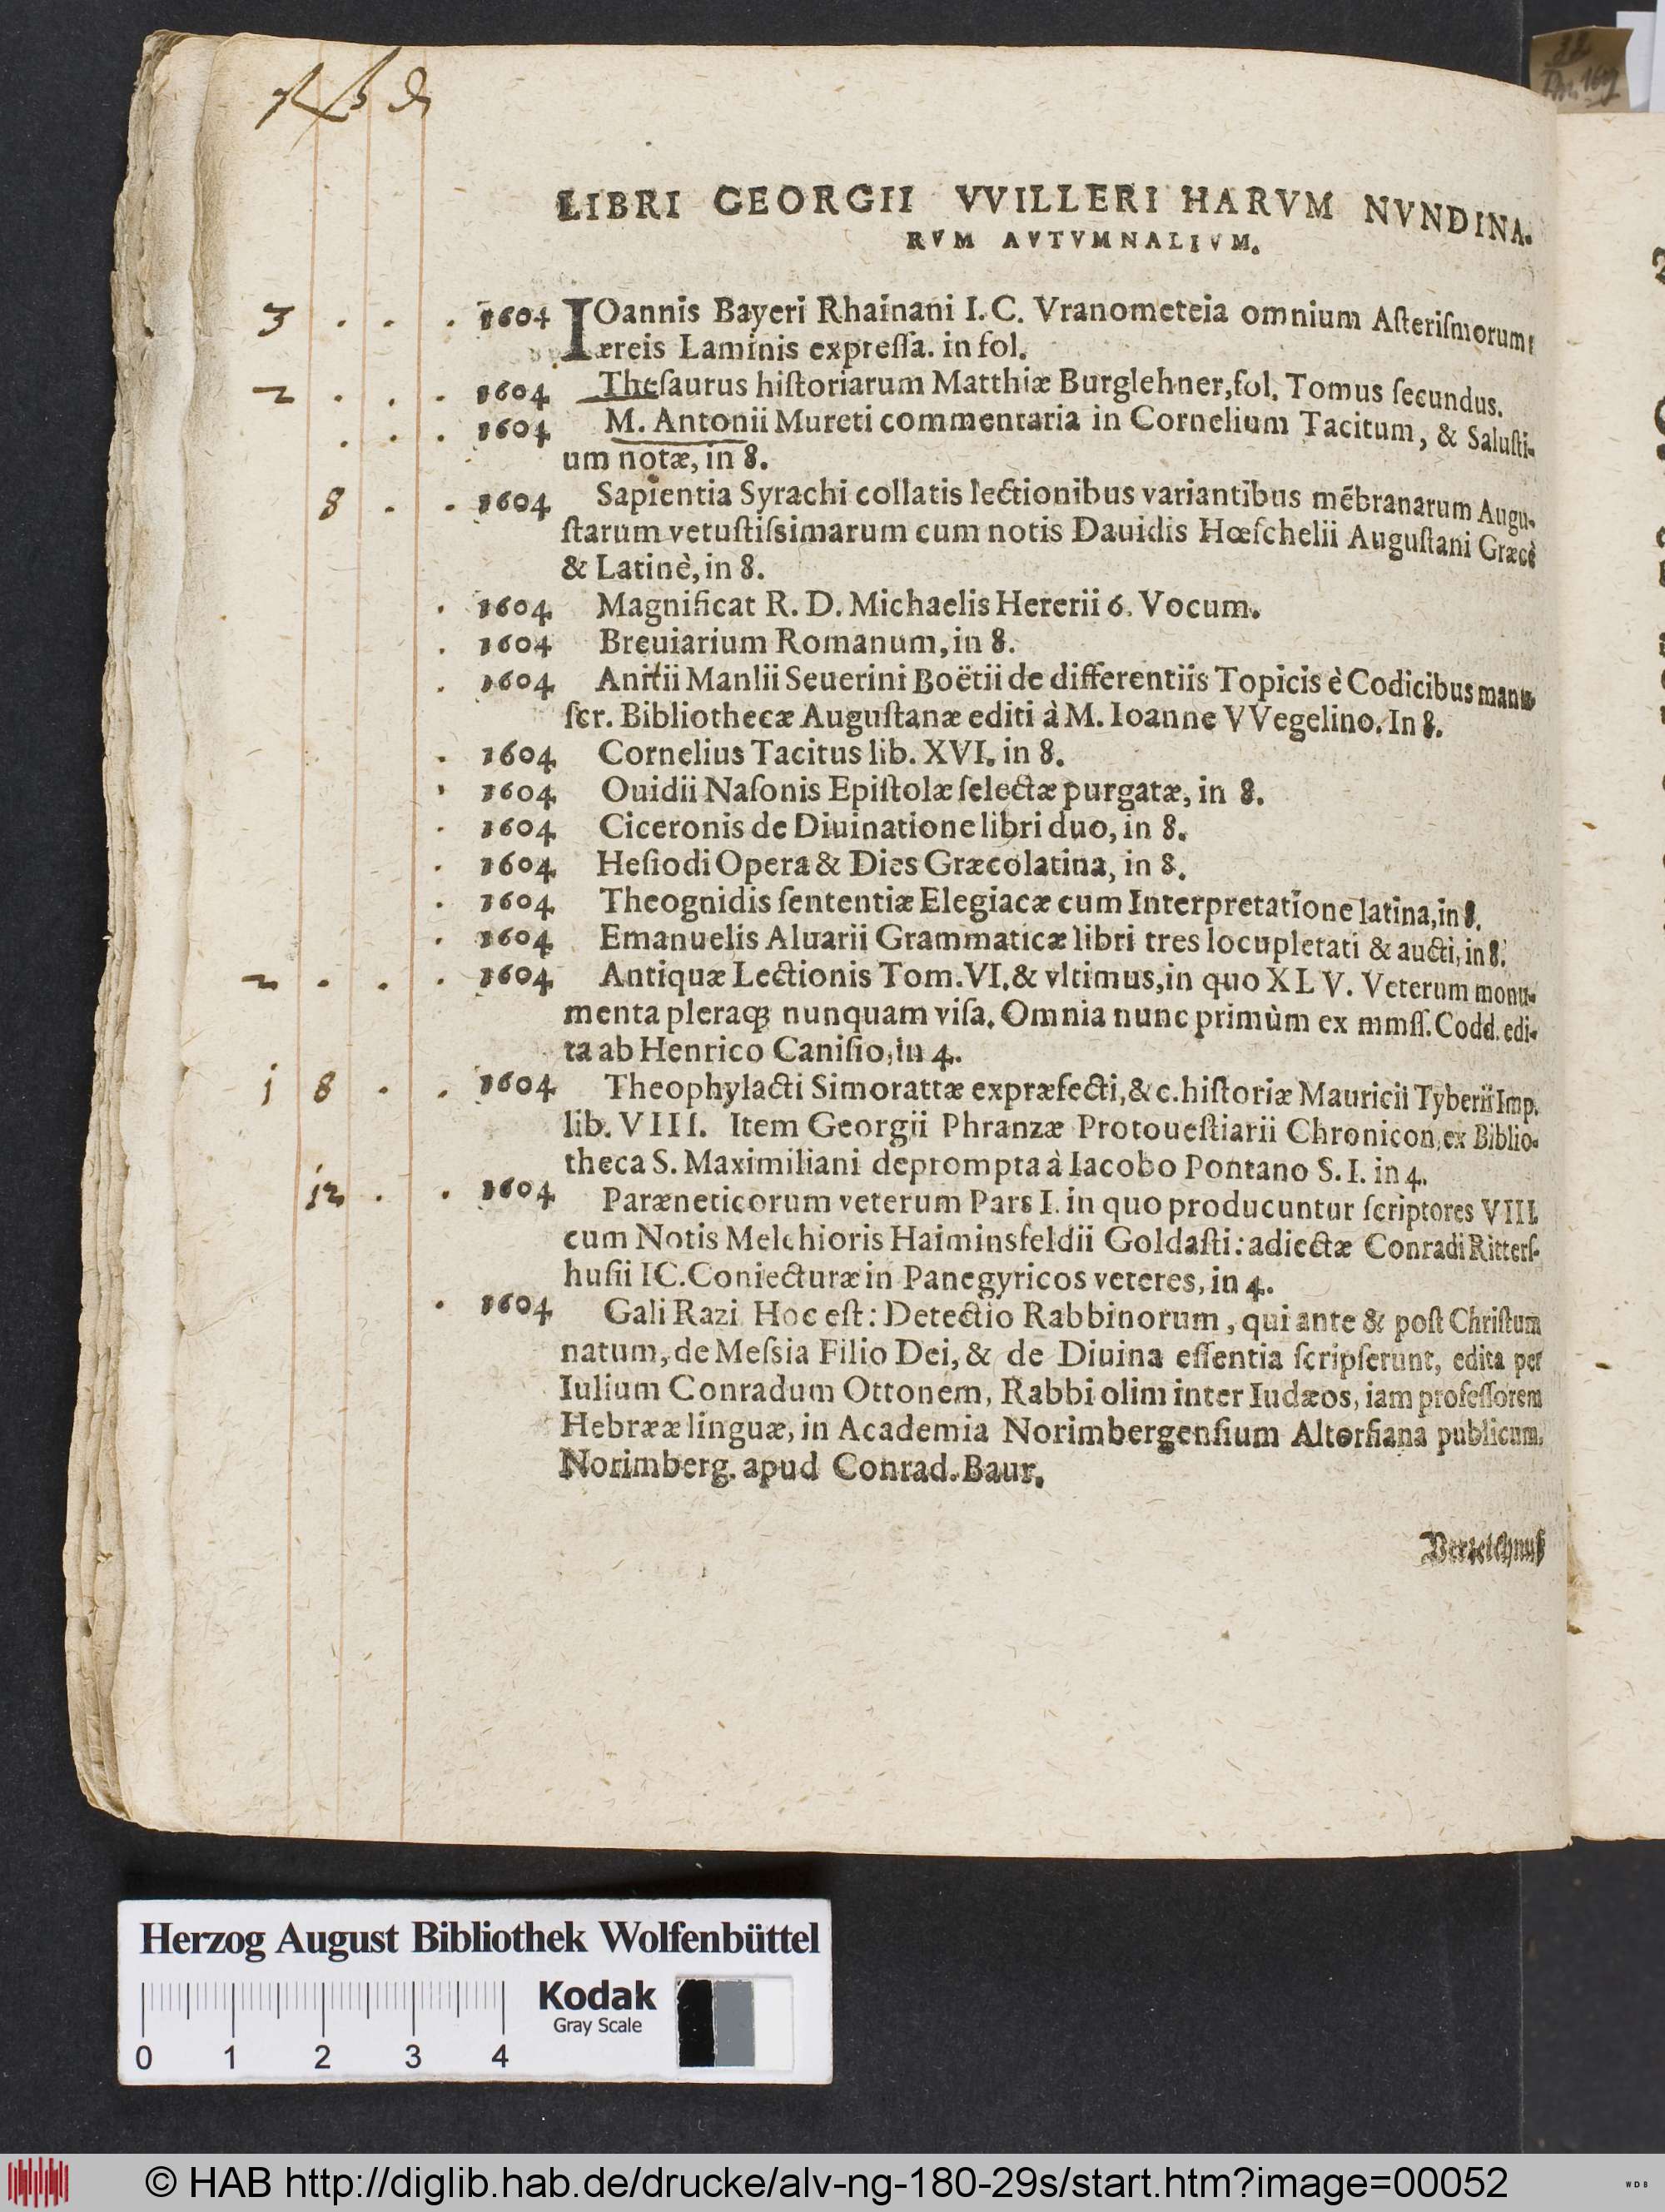 LIBRI GEORGII VVILLERI HARVM NVNDINA.
RVM AVTVMNALIVM.
3 . . . 1604 IOannis Bayeri Rhainani I. C. Vranometeia omnium Aſteriſmorum
æreis Laminis expreſſa. in fol.
2 . . . 1604 Theſaurus hiſtoriarum Matthiæ Burglehner, fol. Tomus ſecundus.
. . . 1604 M. Antonii Mureti commentaria in Cornelium Tacitum, & Saluſti-
um notæ, in 8.
8 . . 1604 Sapientia Syrachi collatis lectionibus variantibus mẽbranarum Augu-
ſtarum vetuſtiſsimarum cum notis Dauidis Hœſchelii Auguſtani Græcè
& Latinè, in 8.
. 1604 Magnificat R. D. Michaelis Hererii 6. Vocum.
. 1604 Breuiarium Romanum, in 8.
. 1604 Anitii Manlii Seuerini Boëtii de differentiis Topicis è Codicibus manu-
ſcr. Bibliothecæ Auguſtanæ editi à M. Ioanne VVegelino. In 8.
. 1604 Cornelius Tacitus lib. XVI. in 8.
. 1604 Ouidii Naſonis Epiſtolæ ſelectæ purgatæ, in 8.
. 1604 Ciceronis de Diuinatione libri duo, in 8.
. 1604 Heſiodi Opera & Dies Græcolatina, in 8.
. 1604 Theognidis ſententiæ Elegiacæ cum Interpretatione latina, in 8.
. 1604 Emanuelis Aluarii Grammaticæ libri tres locupletati & aucti, in 8.
2 . . . 1604 Antiquæ Lectionis Tom. VI. & vltimus, in quo XLV. Veterum monu-
menta pleraq; nunquam viſa. Omnia nunc primùm ex mmſſ. Codd. edi-
ta ab Henrico Caniſio, in 4.
j 8 . . 1604 Theophylacti Simorattæ expræfecti, & c. hiſtoriæ Mauricii Tyberii Imp.
lib. VIII. Item Georgii Phranzæ Protoueſtiarii Chronicon, ex Biblio-
theca S. Maximiliani deprompta à Iacobo Pontano S. I. in 4.
12 . . 1604 Paræneticorum veterum Pars I. in quo producuntur ſcriptores VIII.
cum Notis Melchioris Haiminsfeldii Goldaſti: adiectæ Conradi Ritterſ-
huſii IC. Coniecturæ in Panegyricos veteres, in 4.
. 1604 Gali Razi Hoc eſt: Detectio Rabbinorum, qui ante & poſt Chriſtum
natum, de Meſsia Filio Dei, & de Diuina eſſentia ſcripſerunt, edita per
Iulium Conradum Ottonem, Rabbi olim inter Iudæos, iam profeſſorem
Hebrææ linguæ, in Academia Norimbergenſium Altorfiana publicum.
Norimberg. apud Conrad. Baur.
Verzeichnuß
Herzog August Bibliothek Wolfenbüttel
Kodak
Gray Scale
0 1 2 3 4
© HAB http://diglib.hab.de/drucke/alv-ng-180-29s/start.htm?image=00052
WDB